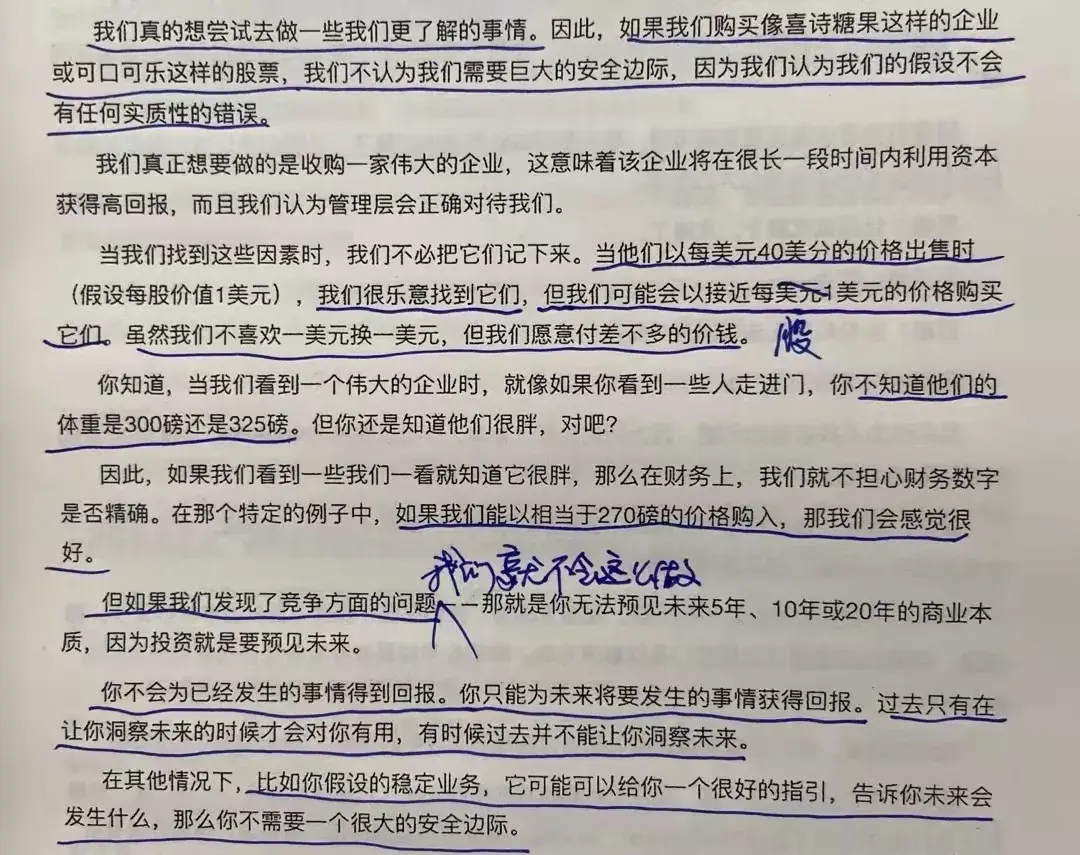 我们真的想尝试去做一些我们更了解的事情。因此，如果我们购买像喜诗糖果这样的企业
或可口可乐这样的股票，我们不认为我们需要巨大的安全边际，因为我们认为我们的假设不会
有任何实质性的错误。
我们真正想要做的是收购一家伟大的企业，这意味着该企业将在很长一段时间内利用资本
获得高回报，而且我们认为管理层会正确对待我们。
当我们找到这些因素时，我们不必把它们记下来。当他们以每美元40美分的价格出售时
（假设每股价值1美元），我们很乐意找到它们，但我们可能会以接近每美元1美元的价格购买
它们。虽然我们不喜欢一美元换一美元，但我们愿意付差不多的价钱。
股
你知道，当我们看到一个伟大的企业时，就像如果你看到一些人走进门，你不知道他们的
体重是300磅还是325磅。但你还是知道他们很胖，对吧？
因此，如果我们看到一些我们一看就知道它很胖，那么在财务上，我们就不担心财务数字
是否精确。在那个特定的例子中，如果我们能以相当于270磅的价格购入，那我们会感觉很
好。
我们就不会这么做
但如果我们发现了竞争方面的问题——那就是你无法预见未来5年、10年或20年的商业本
质，因为投资就是要预见未来。
你不会为已经发生的事情得到回报。你只能为未来将要发生的事情获得回报。过去只有在
让你洞察未来的时候才会对你有用，有时候过去并不能让你洞察未来。
在其他情况下，比如你假设的稳定业务，它可能可以给你一个很好的指引，告诉你未来会
发生什么，那么你不需要一个很大的安全边际。